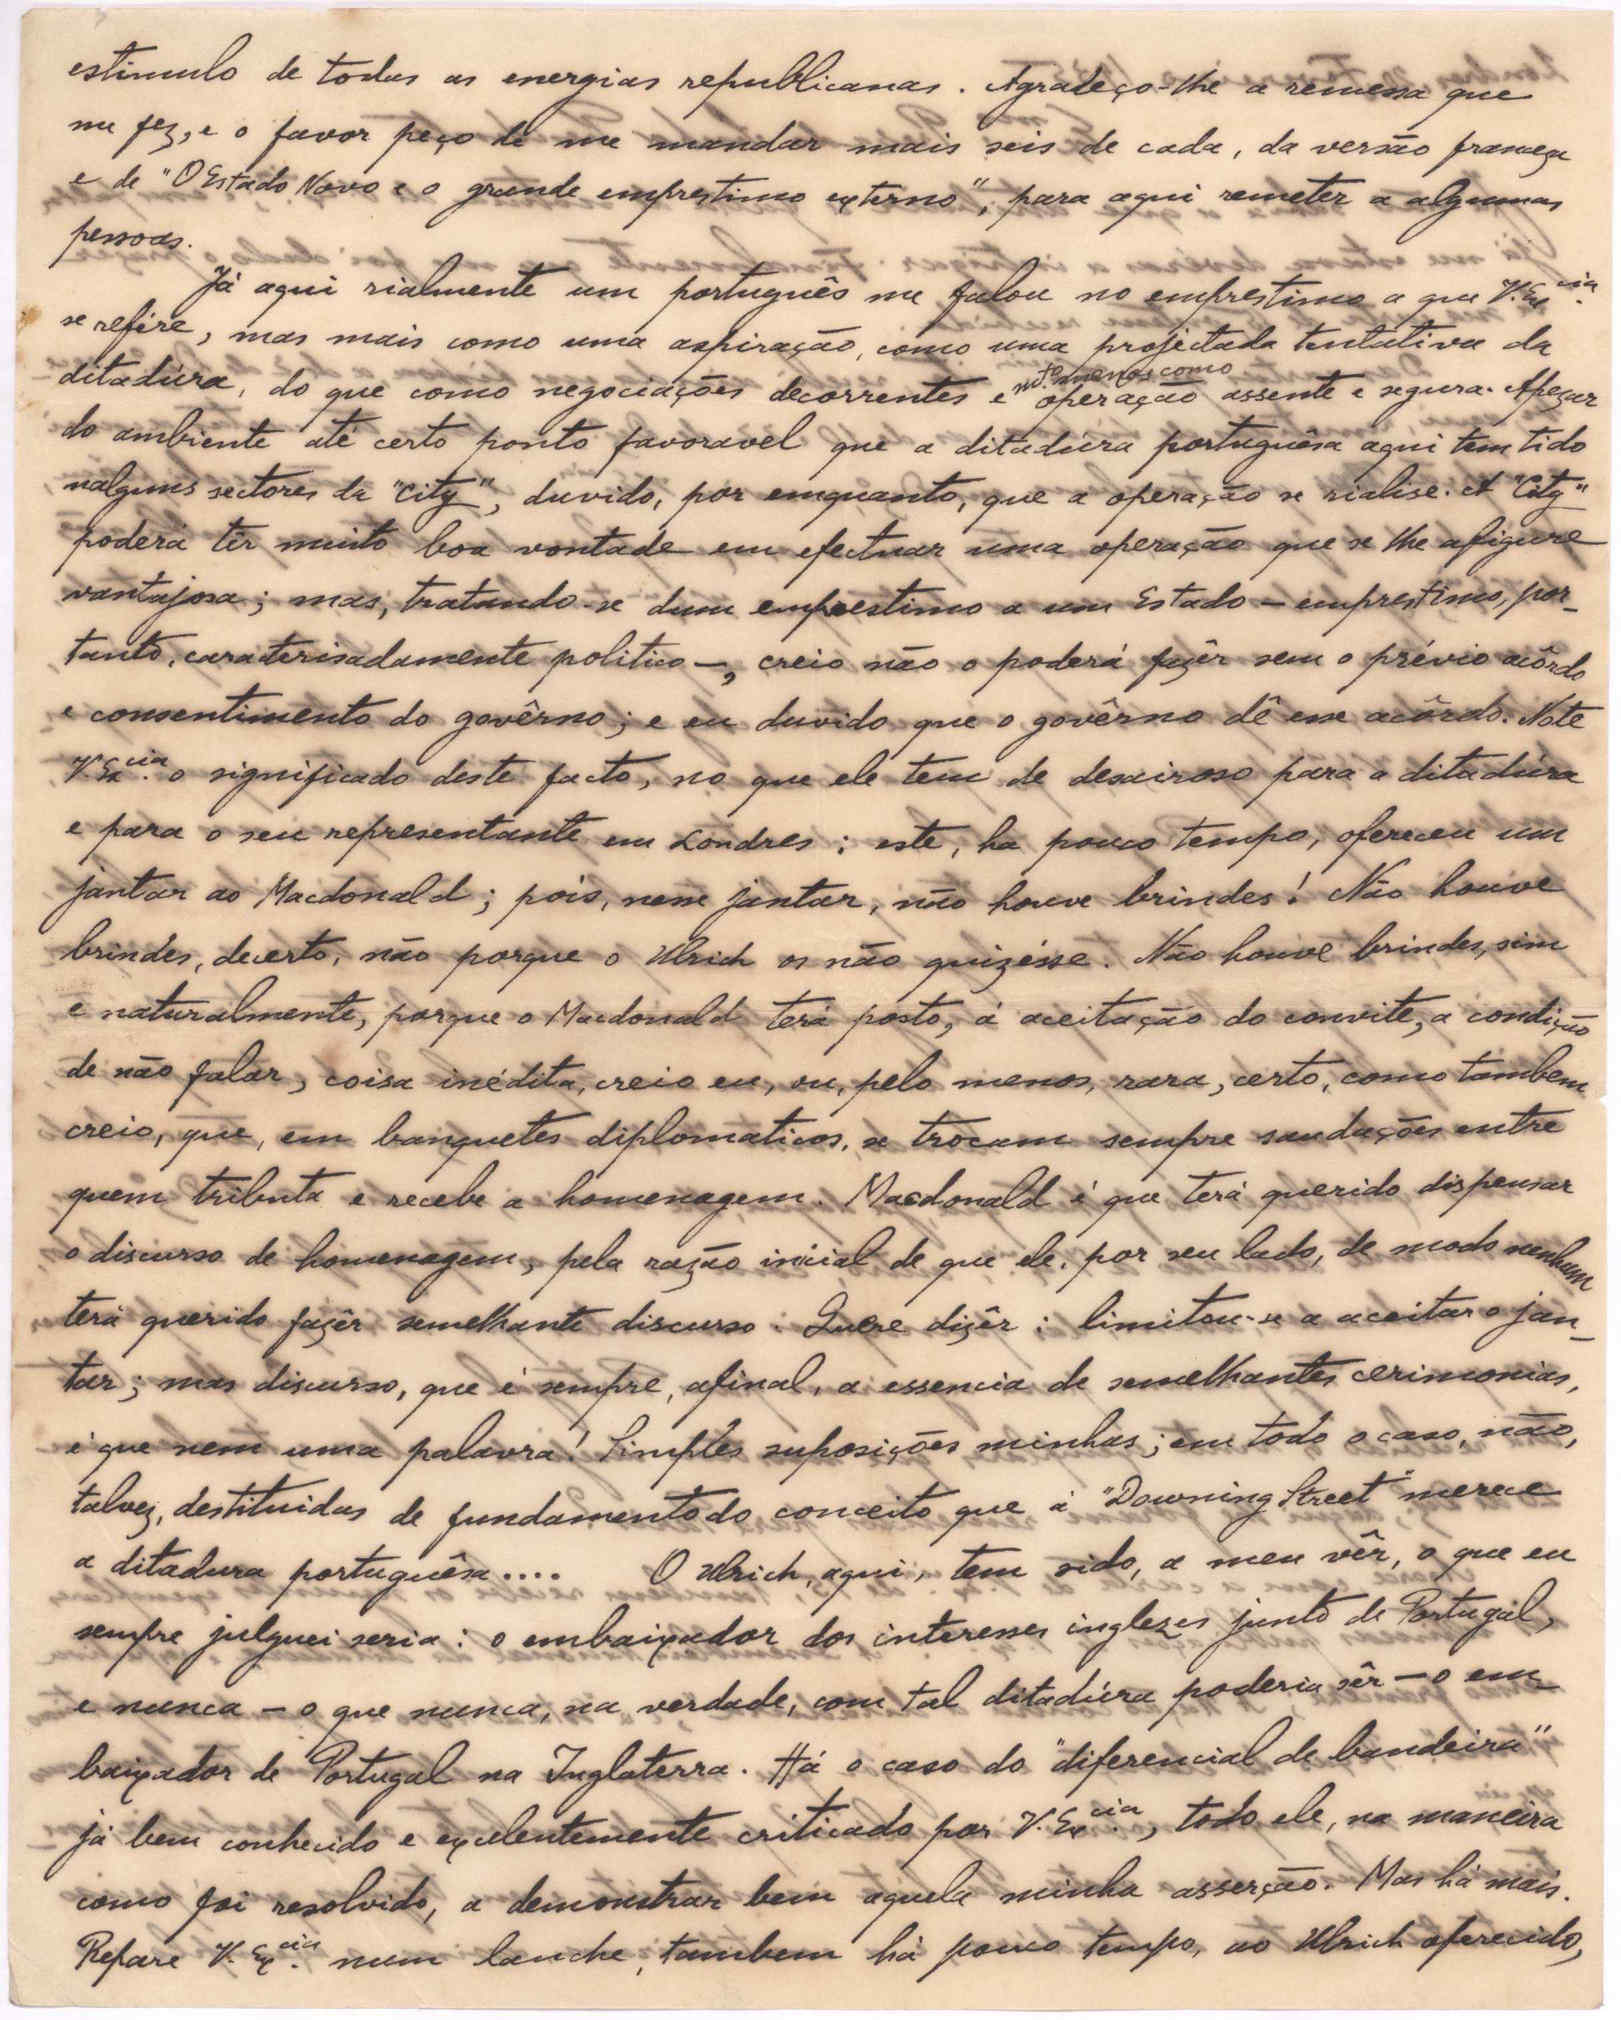 estimulo de todas as energias republicanas. Agradeço-lhe a remessa que
me fez, e o favor peço de me mandar mais seis de cada, da versão franceza
e de "O Estado Novo e o grande emprestimo externo", para aqui remeter a algumas
pessoas.
Já aqui rialmente um português me falou no emprestimo a que V. Ex.cia
se refére, mas mais como uma aspiração, como uma projéctada tentativa da
ditadúra, do que como negociações decorrentes e m.to menos como operação assente e segura. Apezar
do ambiente até certo ponto favoravel que a ditadúra portuguêsa aqui tem tido
nalguns sectores da "City", duvido, por emquanto, que a operação se rialise. A "City"
poderá têr muito boa vontade em efectuar uma operação que se lhe afigure
vantajosa; mas, tratando-se dum emprestimo a um Estado – emprestimo, por-
tanto, caracterisadamente politico –, creio não o poderá fazêr sem o prévio acôrdo
e consentimento do govêrno; e eu duvido que o govêrno dê esse acôrdo. Note
V. Ex.cia o significado deste facto, no que ele tem de desairoso para a ditadúra
e para o seu representante em Londres: este, ha pouco tempo, ofereceu um
jantar ao Macdonald; pois, nesse jantar, não houve brindes! Não houve
brindes, decerto, não porque o Ulrich os não quizésse. Não houve brindes, sim
e naturalmente, porque o Macdonald terá posto, á aceitação do convite, a condição
de não falar, coisa inédita, creio eu, ou, pelo menos, rara, certo, como tambem
creio, que, em banquetes diplomaticos, se trocam sempre saudações entre
quem tributa e recebe a homenagem. Macdonald é que terá querido dispensar
o discurso de homenagem, pela razão inicial de que ele, por seu lado, de modo nenhum
terá querido fazêr semelhante discurso. Quere dizêr: limitou-se a aceitar o jan-
tar; mas discurso, que é sempre, afinal, a essencia de semelhantes cerimonias,
é que nem uma palavra! Simples suposições minhas; em todo o caso, não,
talvez, destituidas de fundamento do conceito que á "Downing Street" merece
a ditadura portuguêsa.... O Ulrich, aqui, tem sido, a meu vêr, o que eu
sempre julguei seria: o embaixador dos interesses inglezes junto de Portugal,
e nunca – o que nunca, na verdade, com tal ditadúra poderia sêr – o em-
baixador de Portugal na Inglaterra. Há o caso do "diferencial de bandeira"
já bem conhecido e excelentemente criticado por V. Ex.cia, todo ele, na maneira
como foi resolvido, a demonstrar bem aquela minha asserção. Mas há mais.
Repare V. Ex.cia num lanche, tambem há pouco tempo, ao Ulrich oferecido,